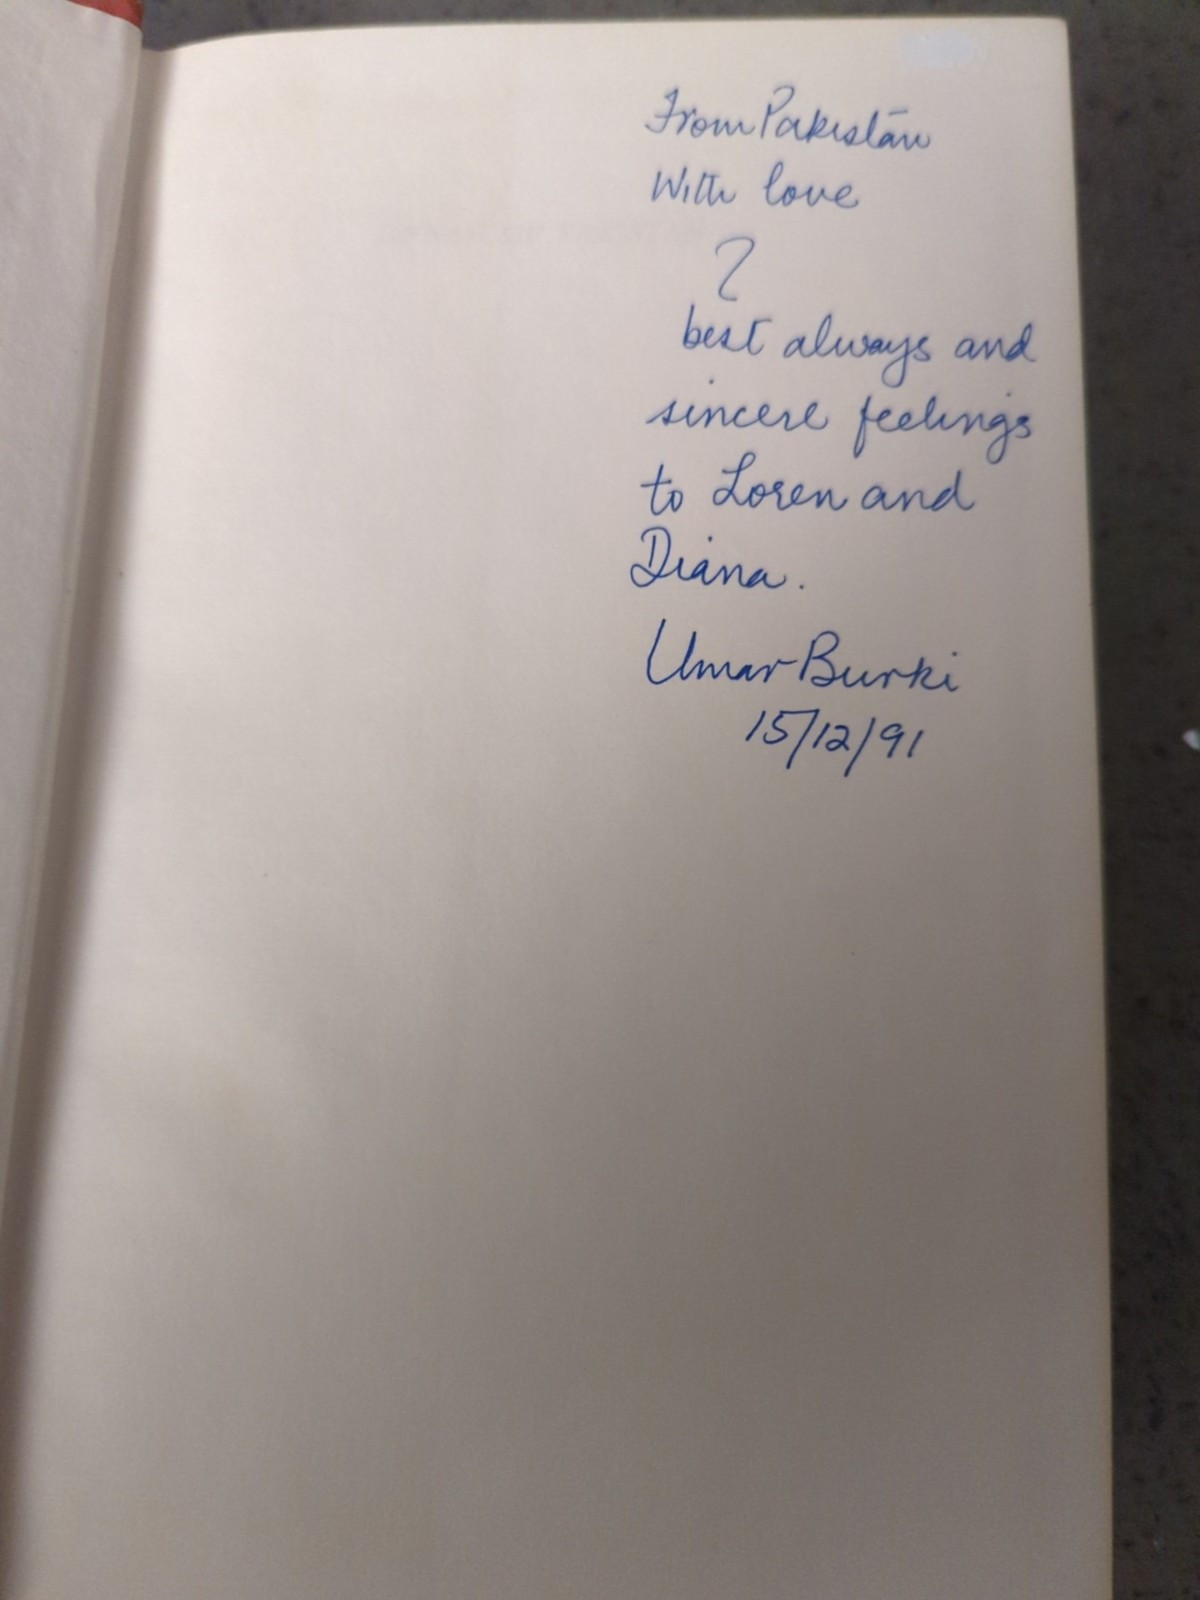 From Pakistan
With love
&
best always and
sincere feelings
to Loren and
Diana.
Umar Burki
15/12/91